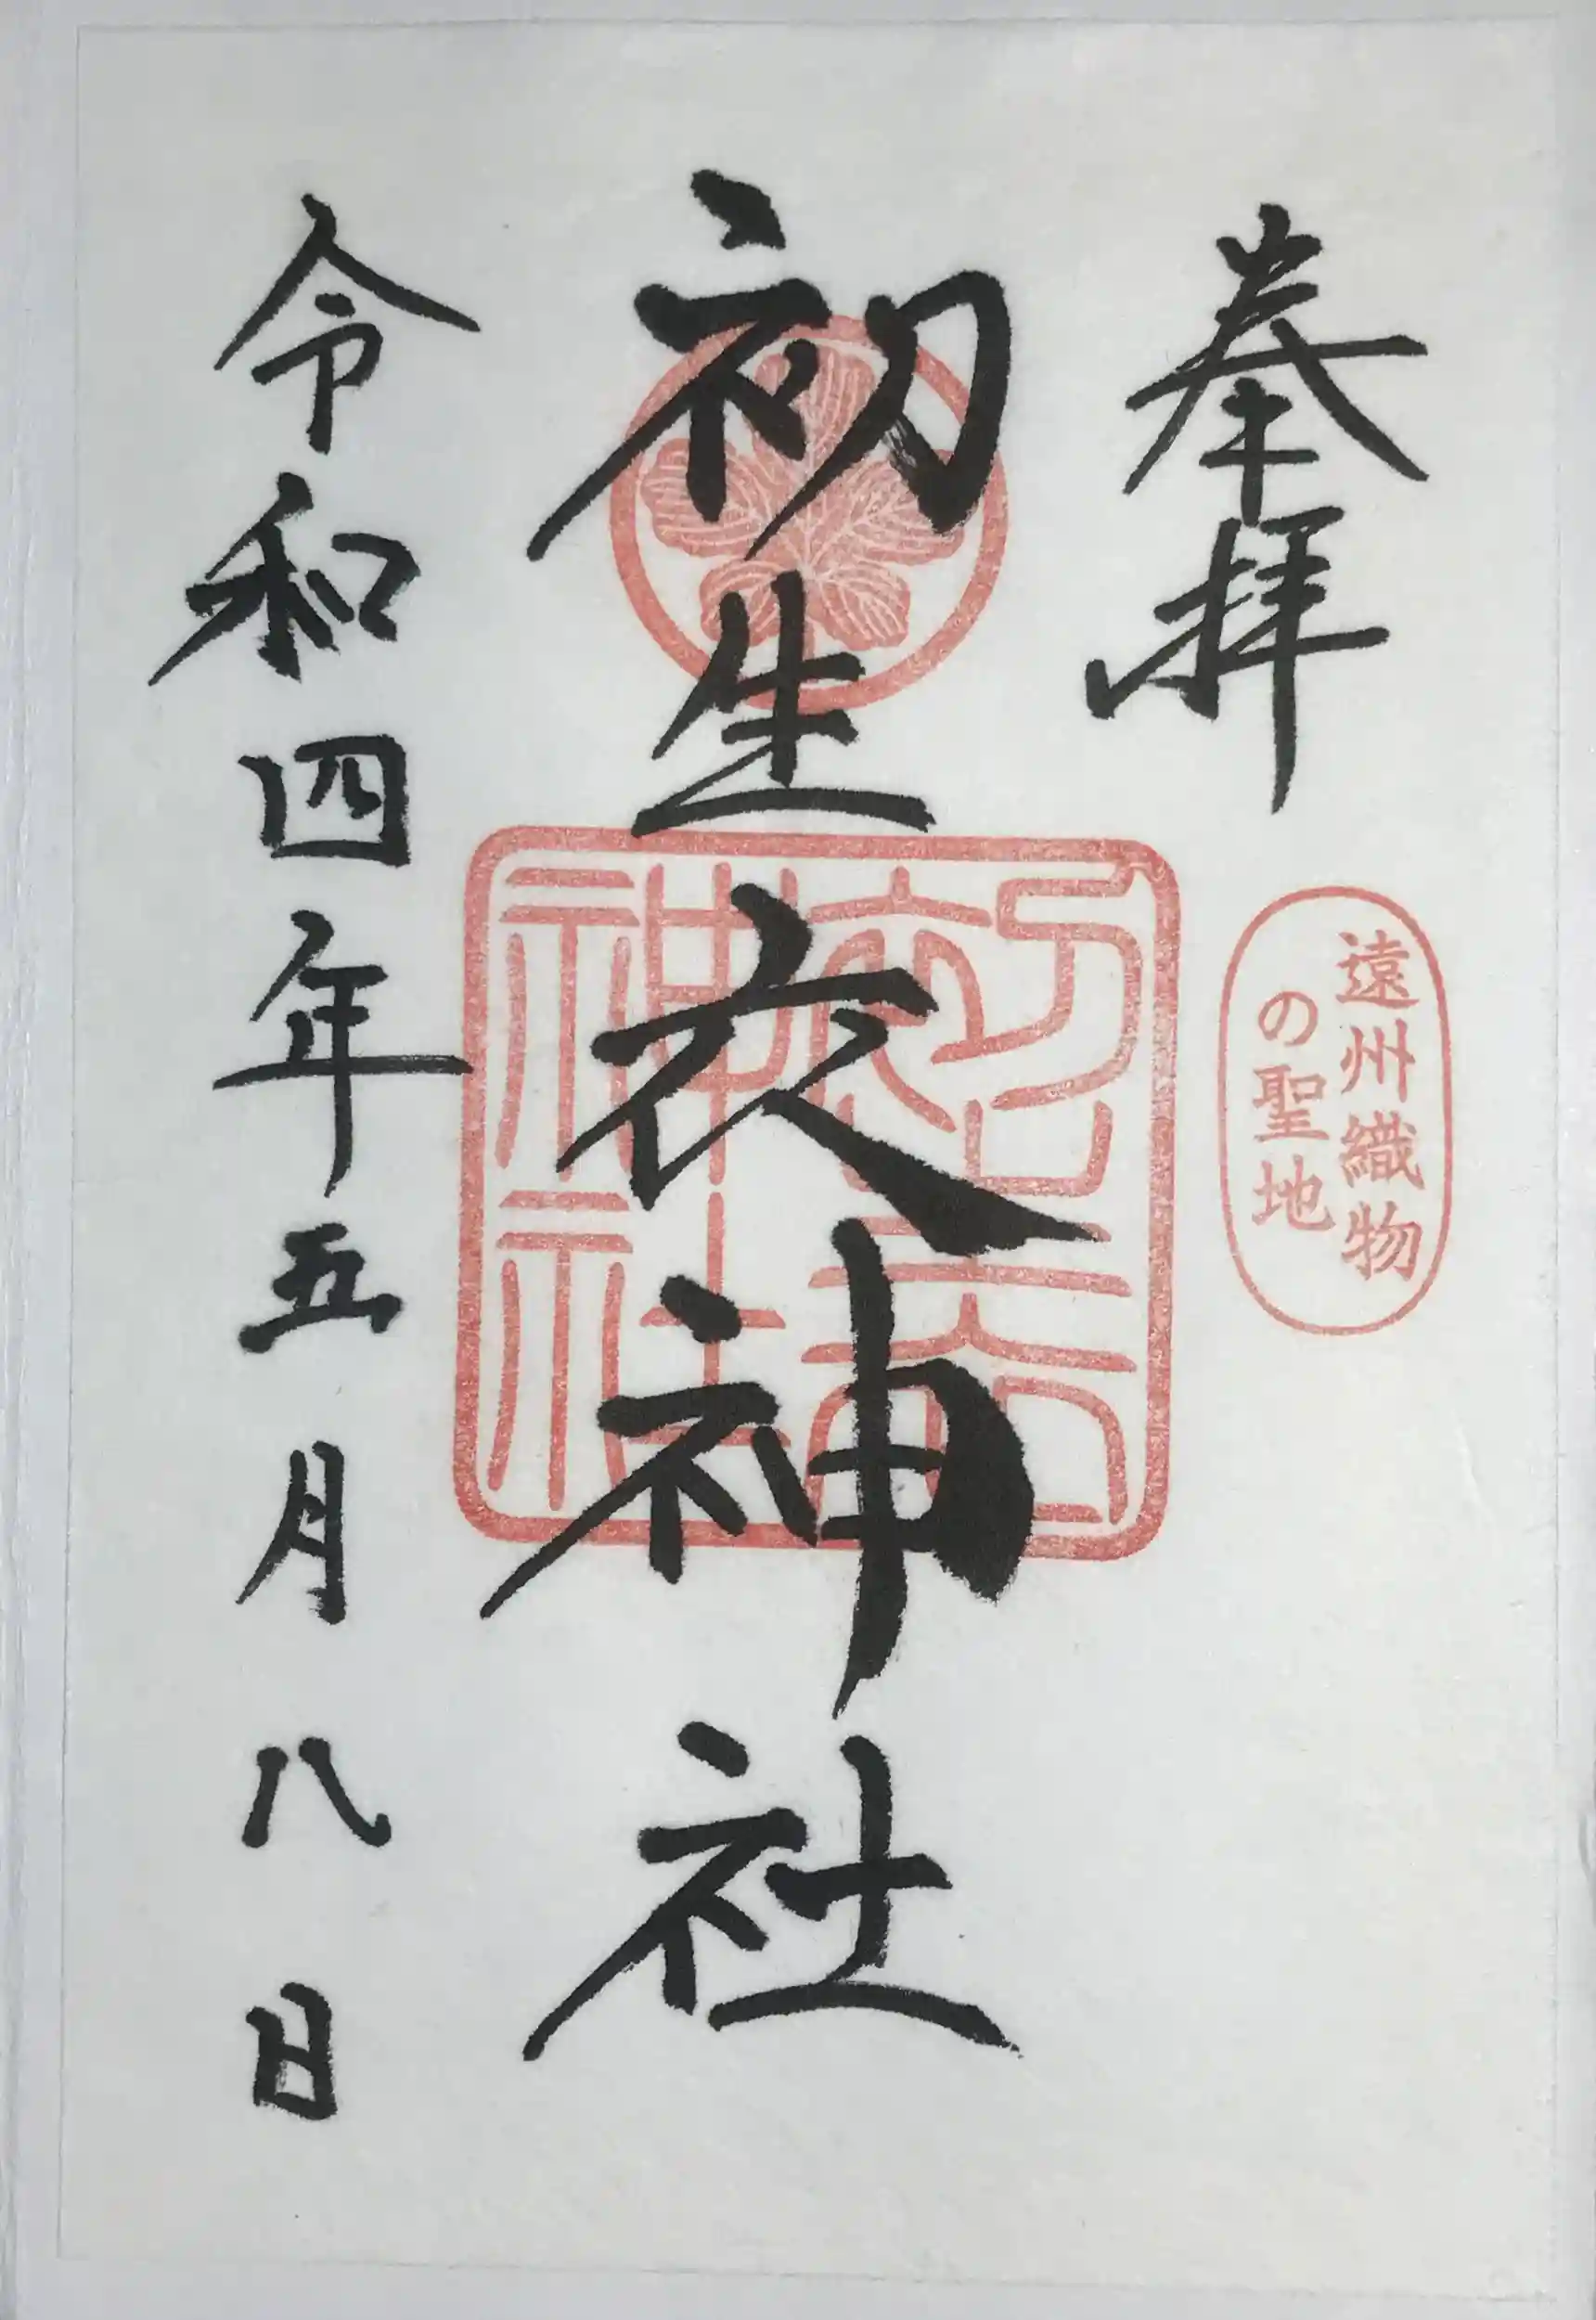 奉拝
遠州織物
の聖地
初生衣神社
初生衣
神社
令和四年五月八日